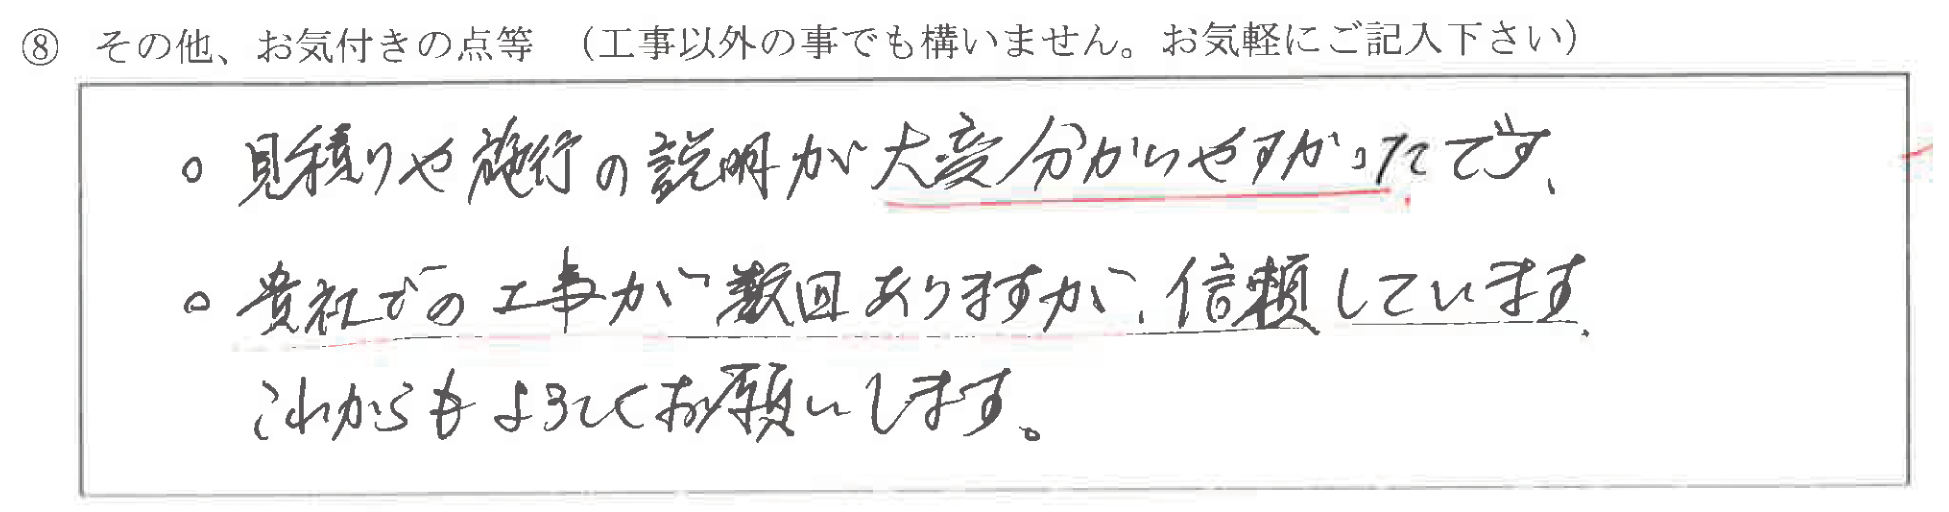 ⑧ その他、お気付きの点等 （工事以外の事でも構いません。お気軽にご記入下さい）
○ 見積りや施行の説明が大変分かりやすかったです、
○ 貴社での工事が数回ありますが、信頼しています、
これからもよろしくお願いします。